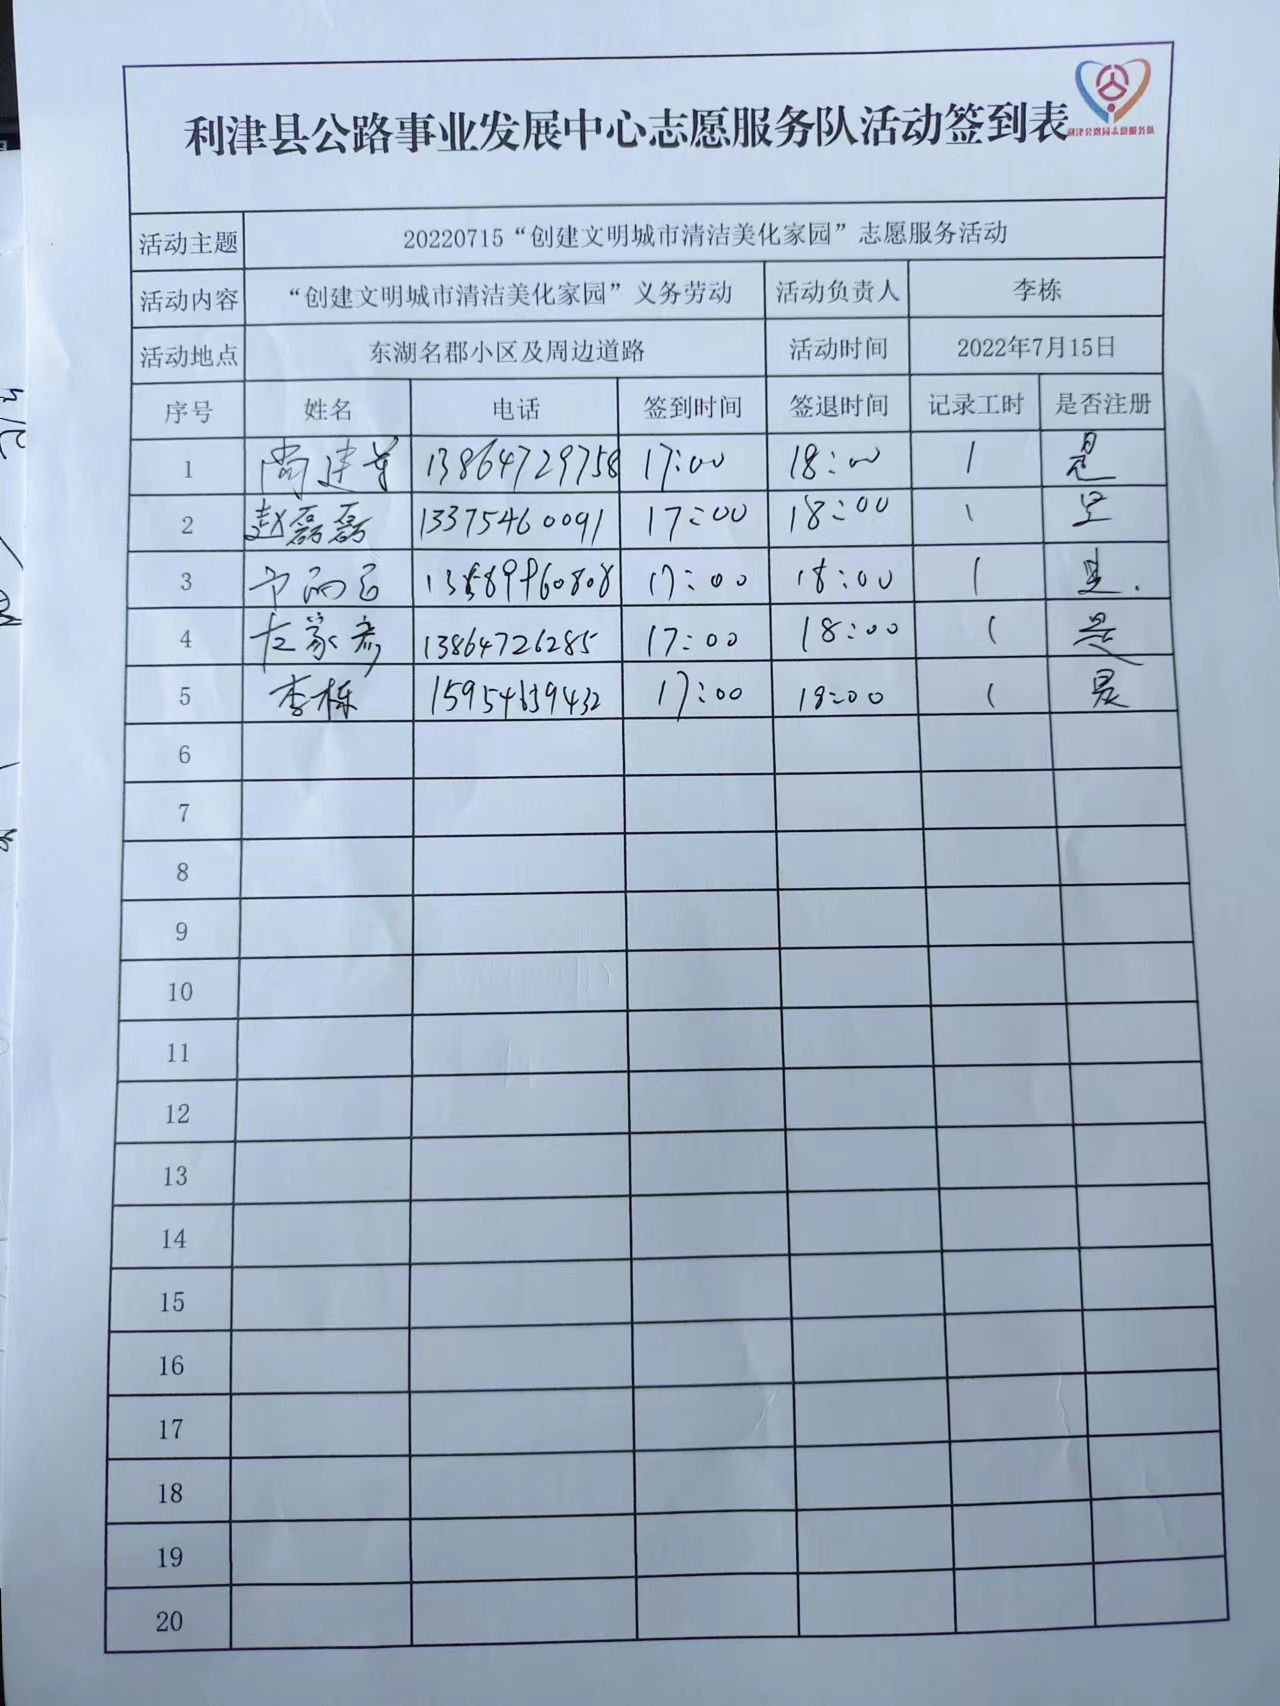 利津县公路事业发展中心志愿服务队活动签到表
利津公路局志愿服务队
活动主题 20220715“创建文明城市清洁美化家园”志愿服务活动
活动内容 “创建文明城市清洁美化家园”义务劳动 活动负责人 李栋
活动地点 东湖名郡小区及周边道路 活动时间 2022年7月15日
序号 姓名 电话 签到时间 签退时间 记录工时 是否注册
1 尚建 13864729758 17:00 18:00 1 是
2 赵磊磊 13375460091 17:00 18:00 1 是
3 17:00 18:00 1 是.
4 左家 13864726285 17:00 18:00 1 是
5 李栋 17:00 18:00 1 是
6
7
8
9
10
11
12
13
14
15
16
17
18
19
20